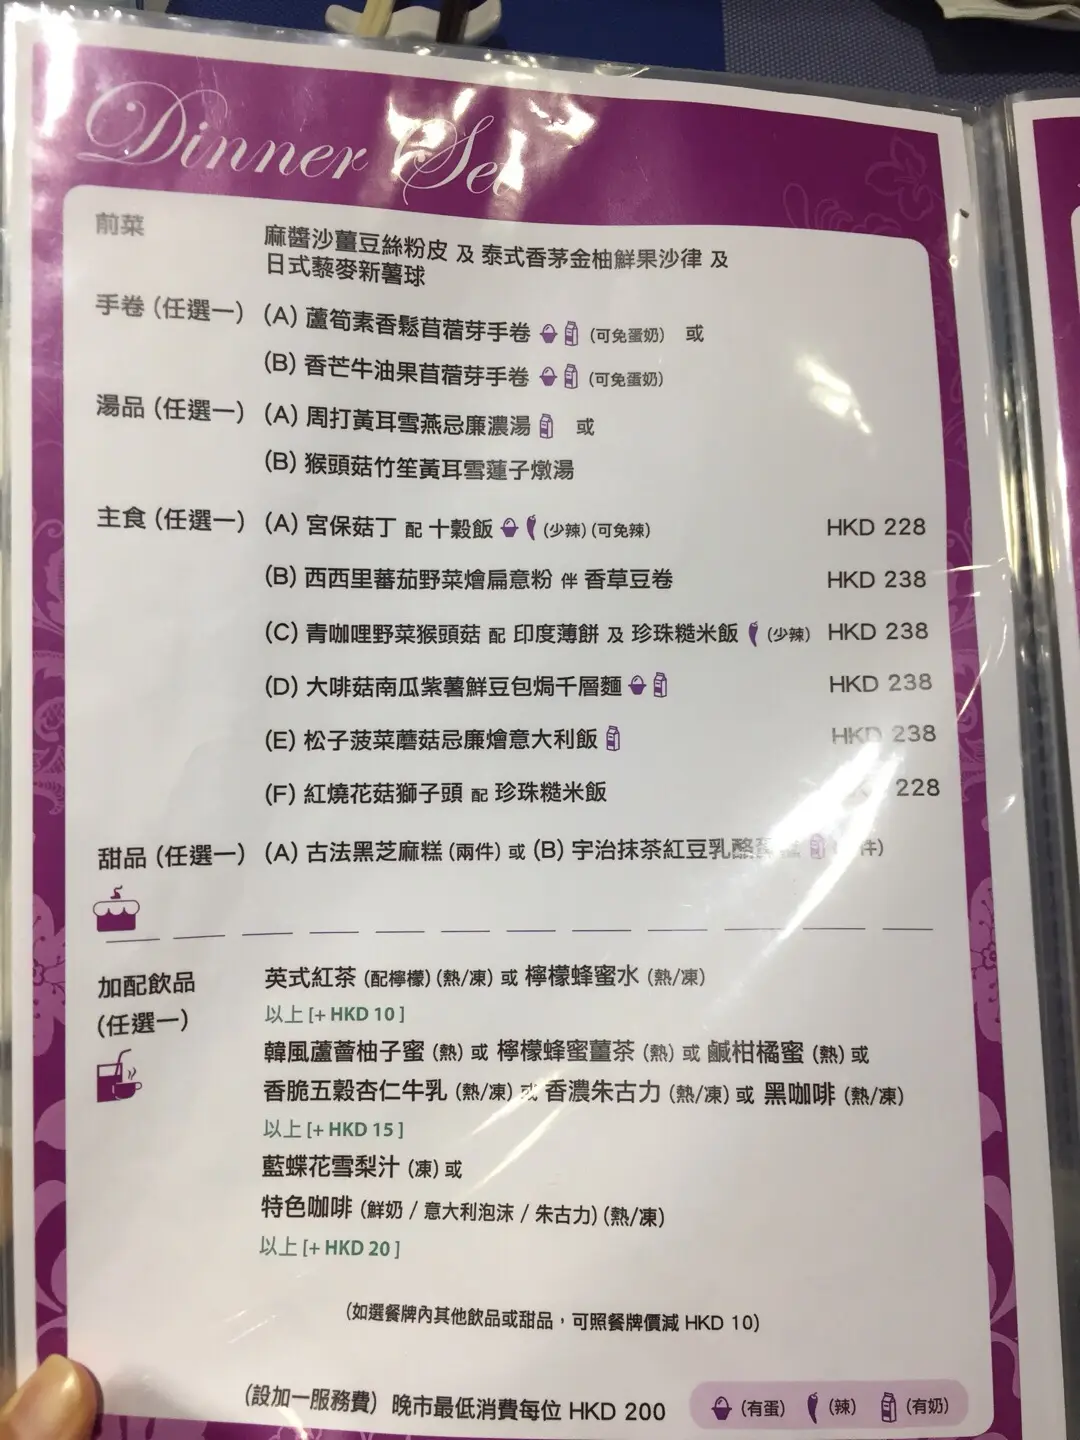 Dinner Set
前菜 麻醬沙薑豆絲粉皮 及 泰式香茅金柚鮮果沙律 及
日式藜麥新薯球
手卷 (任選一) (A) 蘆筍素香鬆苜蓿芽手卷 (可免蛋奶) 或
(B) 香芒牛油果苜蓿芽手卷 (可免蛋奶)
湯品 (任選一) (A) 周打黃耳雪燕忌廉濃湯 或
(B) 猴頭菇竹笙黃耳雪蓮子燉湯
主食 (任選一) (A) 宮保菇丁 配 十穀飯 (少辣) (可免辣) HKD 228
(B) 西西里蕃茄野菜燴扁意粉 伴 香草豆卷 HKD 238
(C) 青咖哩野菜猴頭菇 配 印度薄餅 及 珍珠糙米飯 (少辣) HKD 238
(D) 大啡菇南瓜紫薯鮮豆包焗千層麵 HKD 238
(E) 松子菠菜蘑菇忌廉燴意大利飯 HKD 238
(F) 紅燒花菇獅子頭 配 珍珠糙米飯 228
甜品 (任選一) (A) 古法黑芝麻糕 (兩件) 或 (B) 宇治抹茶紅豆乳酪 件)
加配飲品 英式紅茶 (配檸檬) (熱/凍) 或 檸檬蜂蜜水 (熱/凍)
(任選一) 以上 [+ HKD 10 ]
韓風蘆薈柚子蜜 (熱) 或 檸檬蜂蜜薑茶 (熱) 或 鹹柑橘蜜 (熱) 或
香脆五穀杏仁牛乳 (熱/凍) 或 香濃朱古力 (熱/凍) 或 黑咖啡 (熱/凍)
以上 [+ HKD 15 ]
藍蝶花雪梨汁 (凍) 或
特色咖啡 (鮮奶 / 意大利泡沫 / 朱古力) (熱/凍)
以上 [+ HKD 20 ]
(如選餐牌內其他飲品或甜品，可照餐牌價減 HKD 10)
(設加一服務費) 晚市最低消費每位 HKD 200 (有蛋) (辣) (有奶)